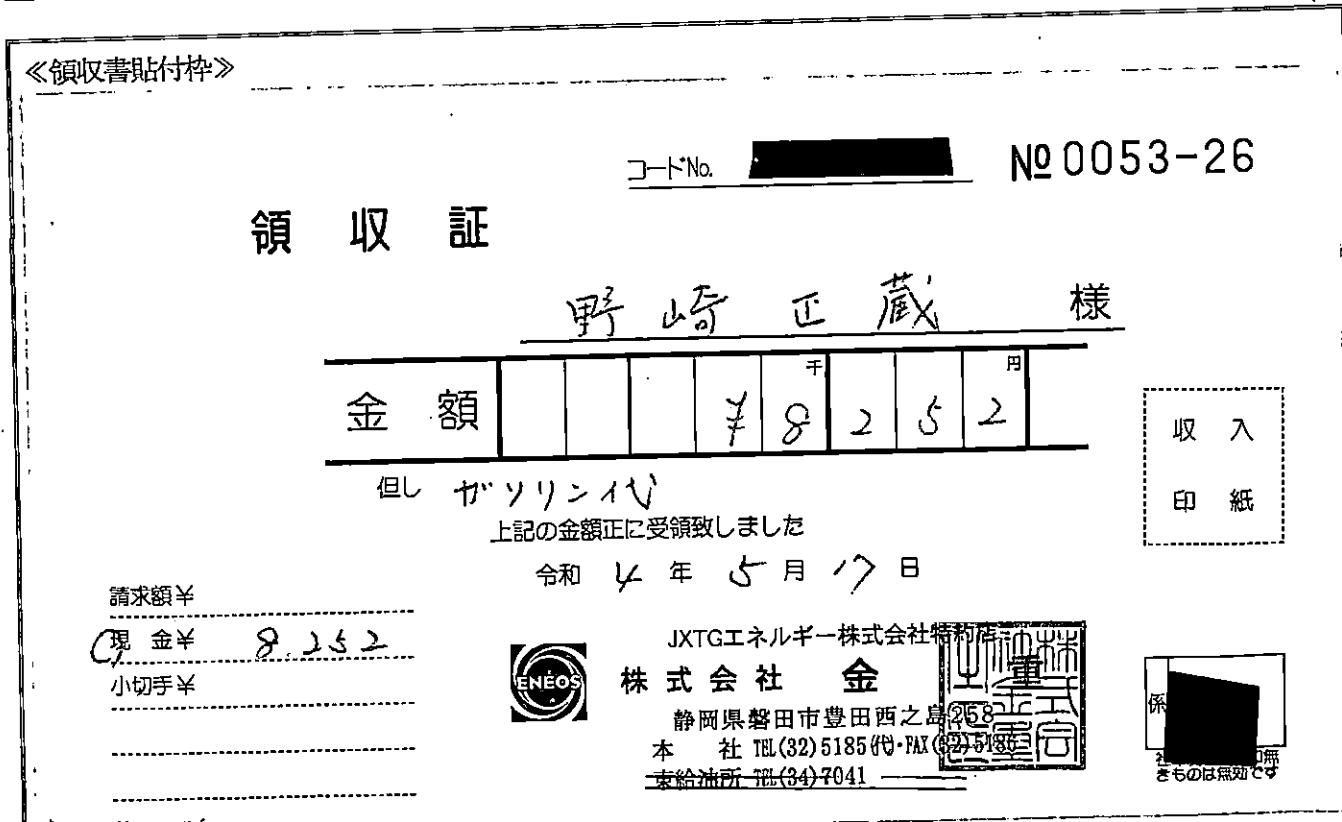 ≪領収書貼付枠≫
コードNo.
№0053-26
領収証
野崎正蔵 様
金額 ¥8252
千 円
但し ガソリン代
上記の金額正に受領致しました
令和 4 年 5 月 17 日
収入
印紙
請求額¥
現金¥ 8.252
小切手¥
ENEOS
JXTGエネルギー株式会社特約店
株式会社 金
静岡県磐田市豊田西之島258
本社 TEL(32)5185(代)・FAX(32)5186
東給油所 TEL(34)7041
係
きものは無効です